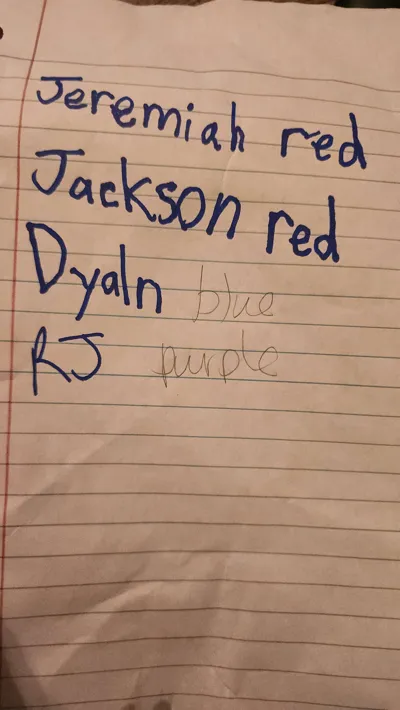 Jeremiah red
Jackson red
Dyaln blue
RJ purple